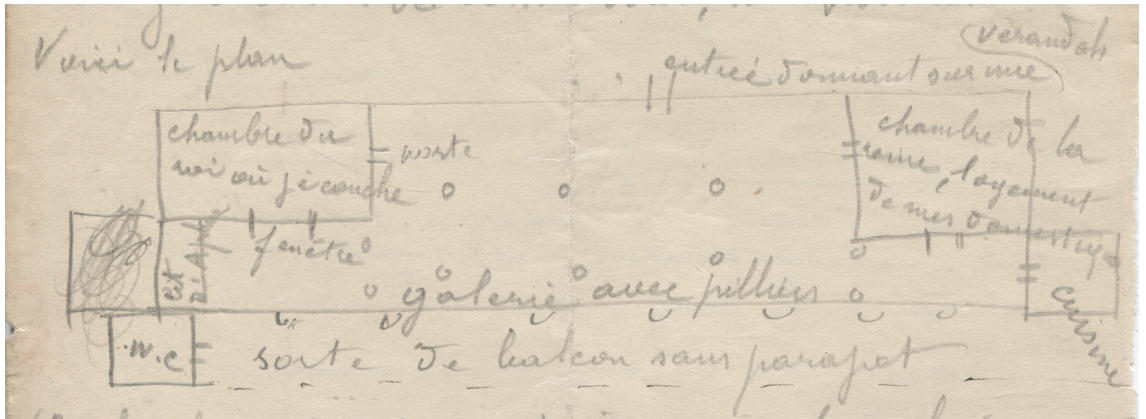 Voici le plan
verandah
entrée donnant sur une
chambre du
roi où je couche
porte
chambre de la
reine, logement
de mes domestiques
fenêtre
galerie avec pilliers
cuisine
W.C
sorte de balcon sans parapet